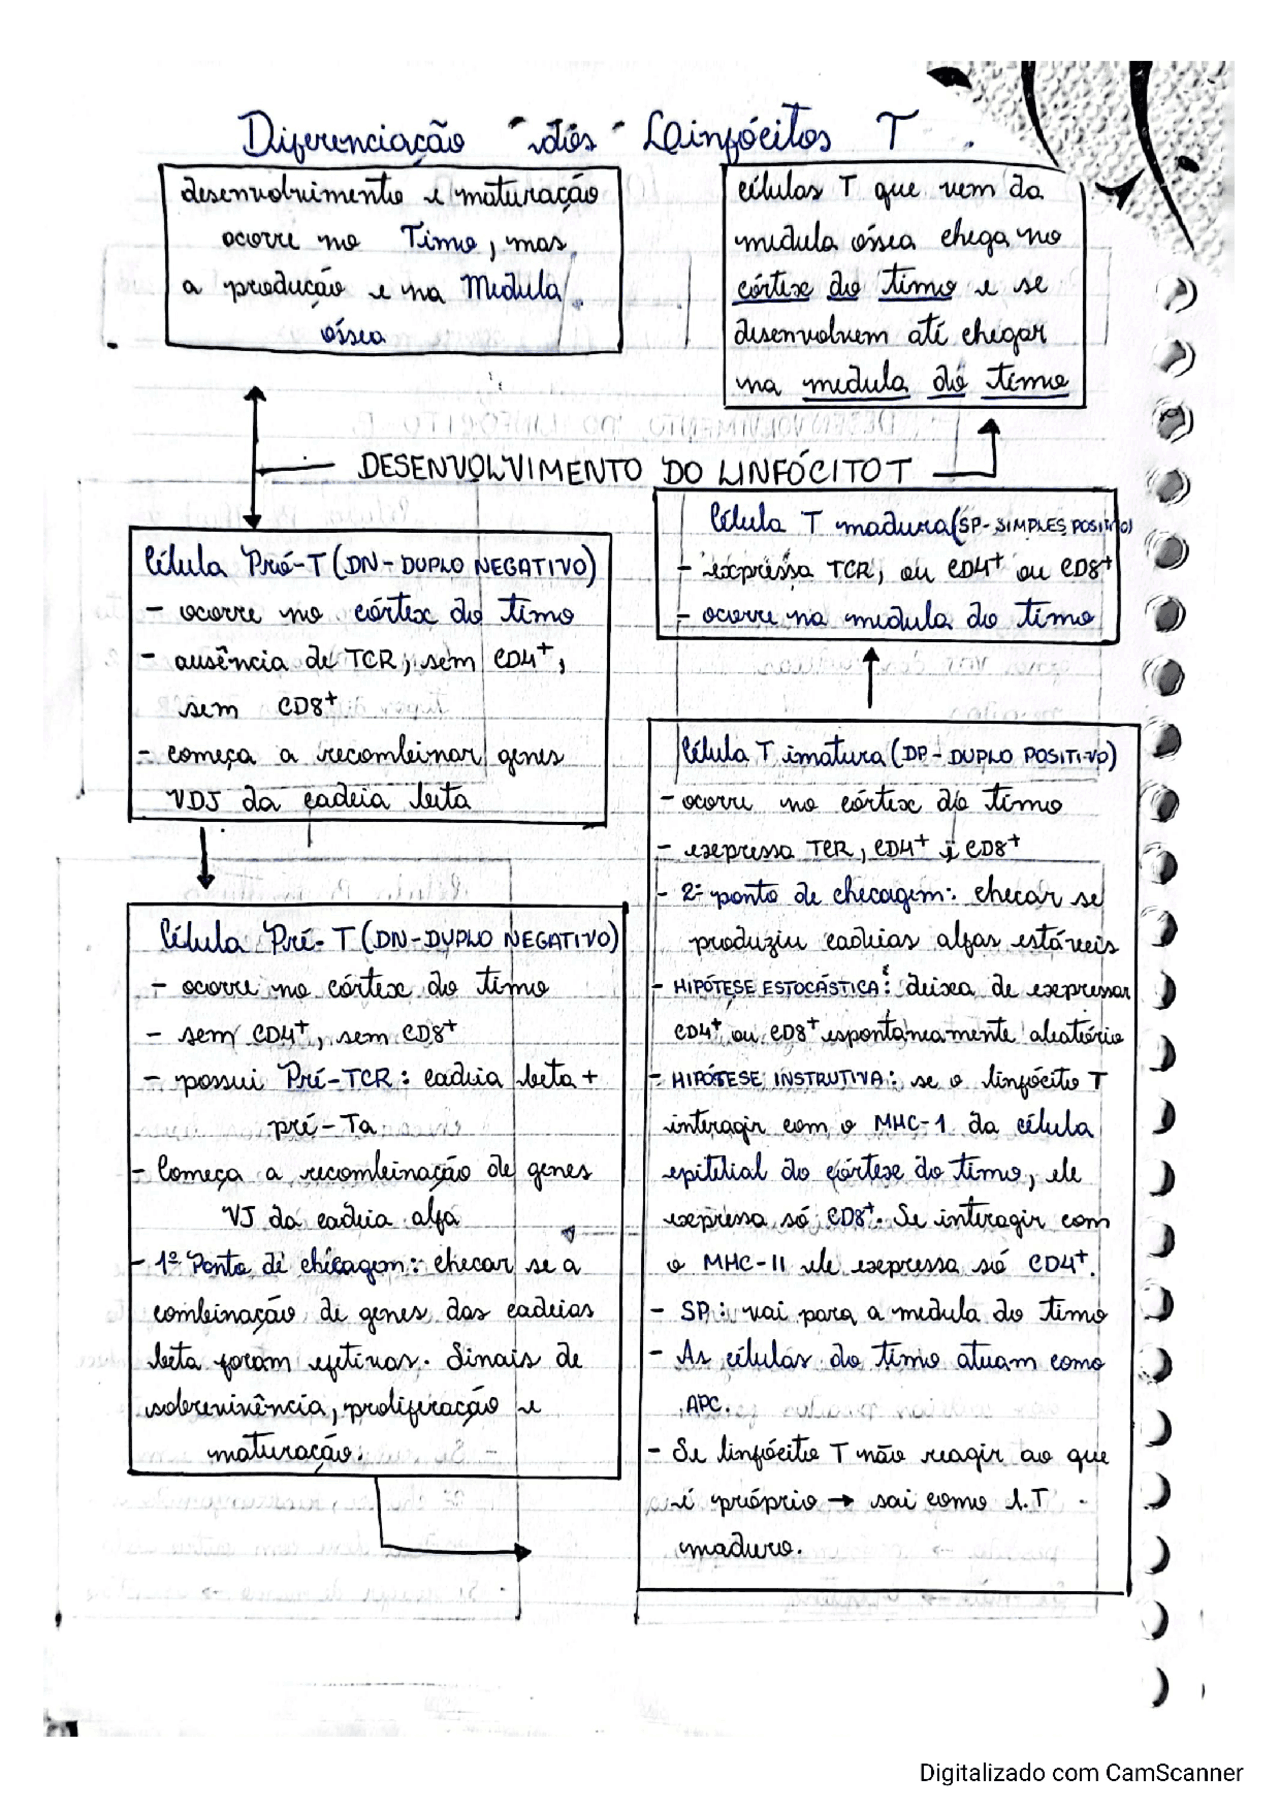 Diferenciação dos Linfócitos T.
desenvolvimento e maturação
ocorre no Timo, mas
a produção e na Medula
óssea
células T que vem da
medula óssea chega no
córtex do timo e se
desenvolvem até chegar
na medula do timo
DESENVOLVIMENTO DO LINFÓCITO T
Célula Pró-T (DN-DUPLO NEGATIVO)
- ocorre no córtex do timo
- ausência de TCR, sem CD4+,
sem CD8+
- começa a recombinar genes
VDJ da cadeia beta
Célula Pré-T (DN-DUPLO NEGATIVO)
- ocorre no córtex do timo
- sem CD4+, sem CD8+
- possui Pré-TCR: cadeia beta +
pré-Ta
- Começa a recombinação de genes
VJ da cadeia alfa
- 1º Ponto de checagem: checar se a
combinação de genes das cadeias
beta foram efetivas. Sinais de
sobrevivência, proliferação e
maturação.
Célula T madura (SP-SIMPLES POSITIVO)
- expressa TCR, ou CD4+ ou CD8+
- ocorre na medula do timo
Célula T imatura (DP-DUPLO POSITIVO)
- ocorre no córtex do timo
- expressa TCR, CD4+ e CD8+
- 2º ponto de checagem: checar se
produziu cadeias alfas estáveis
- HIPÓTESE ESTOCÁSTICA: deixa de expressar
CD4+ ou CD8+ espontaneamente aleatório
- HIPÓTESE INSTRUTIVA: se o linfócito T
interagir com o MHC-1 da célula
epitelial do córtex do timo, ele
expressa só CD8+. Se interagir com
o MHC-II ele expressa só CD4+.
- SP: vai para a medula do timo
- As células do timo atuam como
APC.
- Se linfócito T não reagir ao que
é próprio → sai como L.T
maduro.
Digitalizado com CamScanner